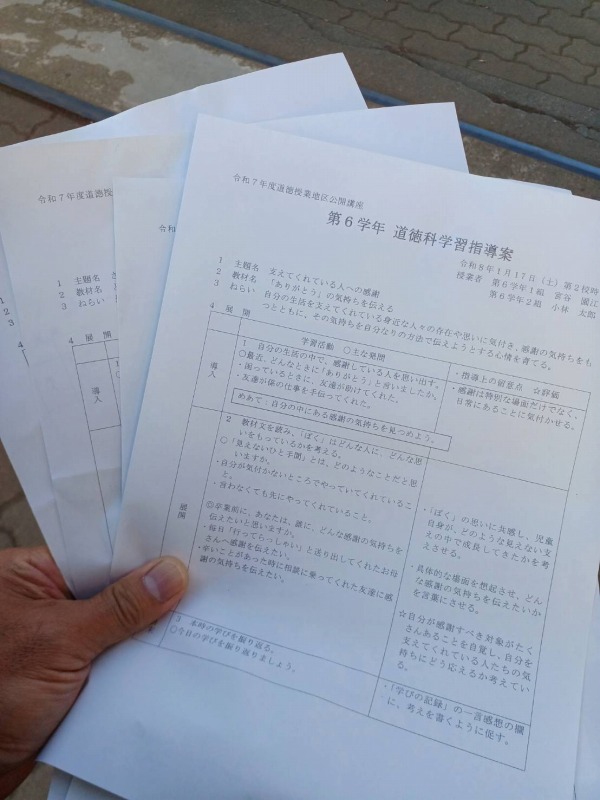 令和7年度道徳授業地区公開講座
第6学年 道徳科学習指導案
令和8年1月17日(土)第2校時
授業者 第6学年1組 宮谷 園江
第6学年2組 小林 太郎
1 主題名 支えてくれている人への感謝
2 教材名 「ありがとう」の気持ちを伝える
3 ねらい 自分の生活を支えてくれている身近な人々の存在や思いに気付き、感謝の気持ちをも
つとともに、その気持ちを自分なりの方法で伝えようとする心情を育てる。
4 展開
学習活動 ○主な発問
・指導上の留意点 ☆評価
導入
1 自分の生活の中で、感謝している人を思い出す。
○最近、どんなときに「ありがとう」と言いましたか。
・困っているときに、友達が助けてくれた。
・友達が係の仕事を手伝ってくれた。
めあて:自分の中にある感謝の気持ちを見つめよう。
・感謝は特別な場面だけでなく、
日常にあることに気付かせる。
展開
2 教材文を読み、「ぼく」はどんな人に、どんな思
いをもっているかを考える。
○「見えないひと手間」とは、どのようなことだと思
いますか。
・自分が気付かないところでやっていてくれているこ
と。
・言わなくても先にやってくれていること。
◎卒業前に、あなたは、誰に、どんな感謝の気持ちを
伝えたいと思いますか。
・毎日「行ってらっしゃい」と送り出してくれたお母
さんへ感謝を伝えたい。
・辛いことがあった時に相談に乗ってくれた友達に感
謝の気持ちを伝えたい。
・「ぼく」の思いに共感し、児童
自身が、どのような見えない支
えの中で成長してきたかを考
えさせる。
・具体的な場面を想起させ、どん
な感謝の気持ちを伝えたいか
を言葉にさせる。
☆自分が感謝すべき対象がたく
さんあることを自覚し、自分を
支えてくれている人たちの気
持ちにどう応えるか考えてい
る。
3 本時の学びを振り返る。
○今日の学びを振り返りましょう。
・「学びの記録」の一言感想の欄
に、考えを書くように促す。
令和7年度道徳授
1 主題名 さ
2 教材名 お
3 ねらい
4 展開
導入
令和7
1
2
3
4